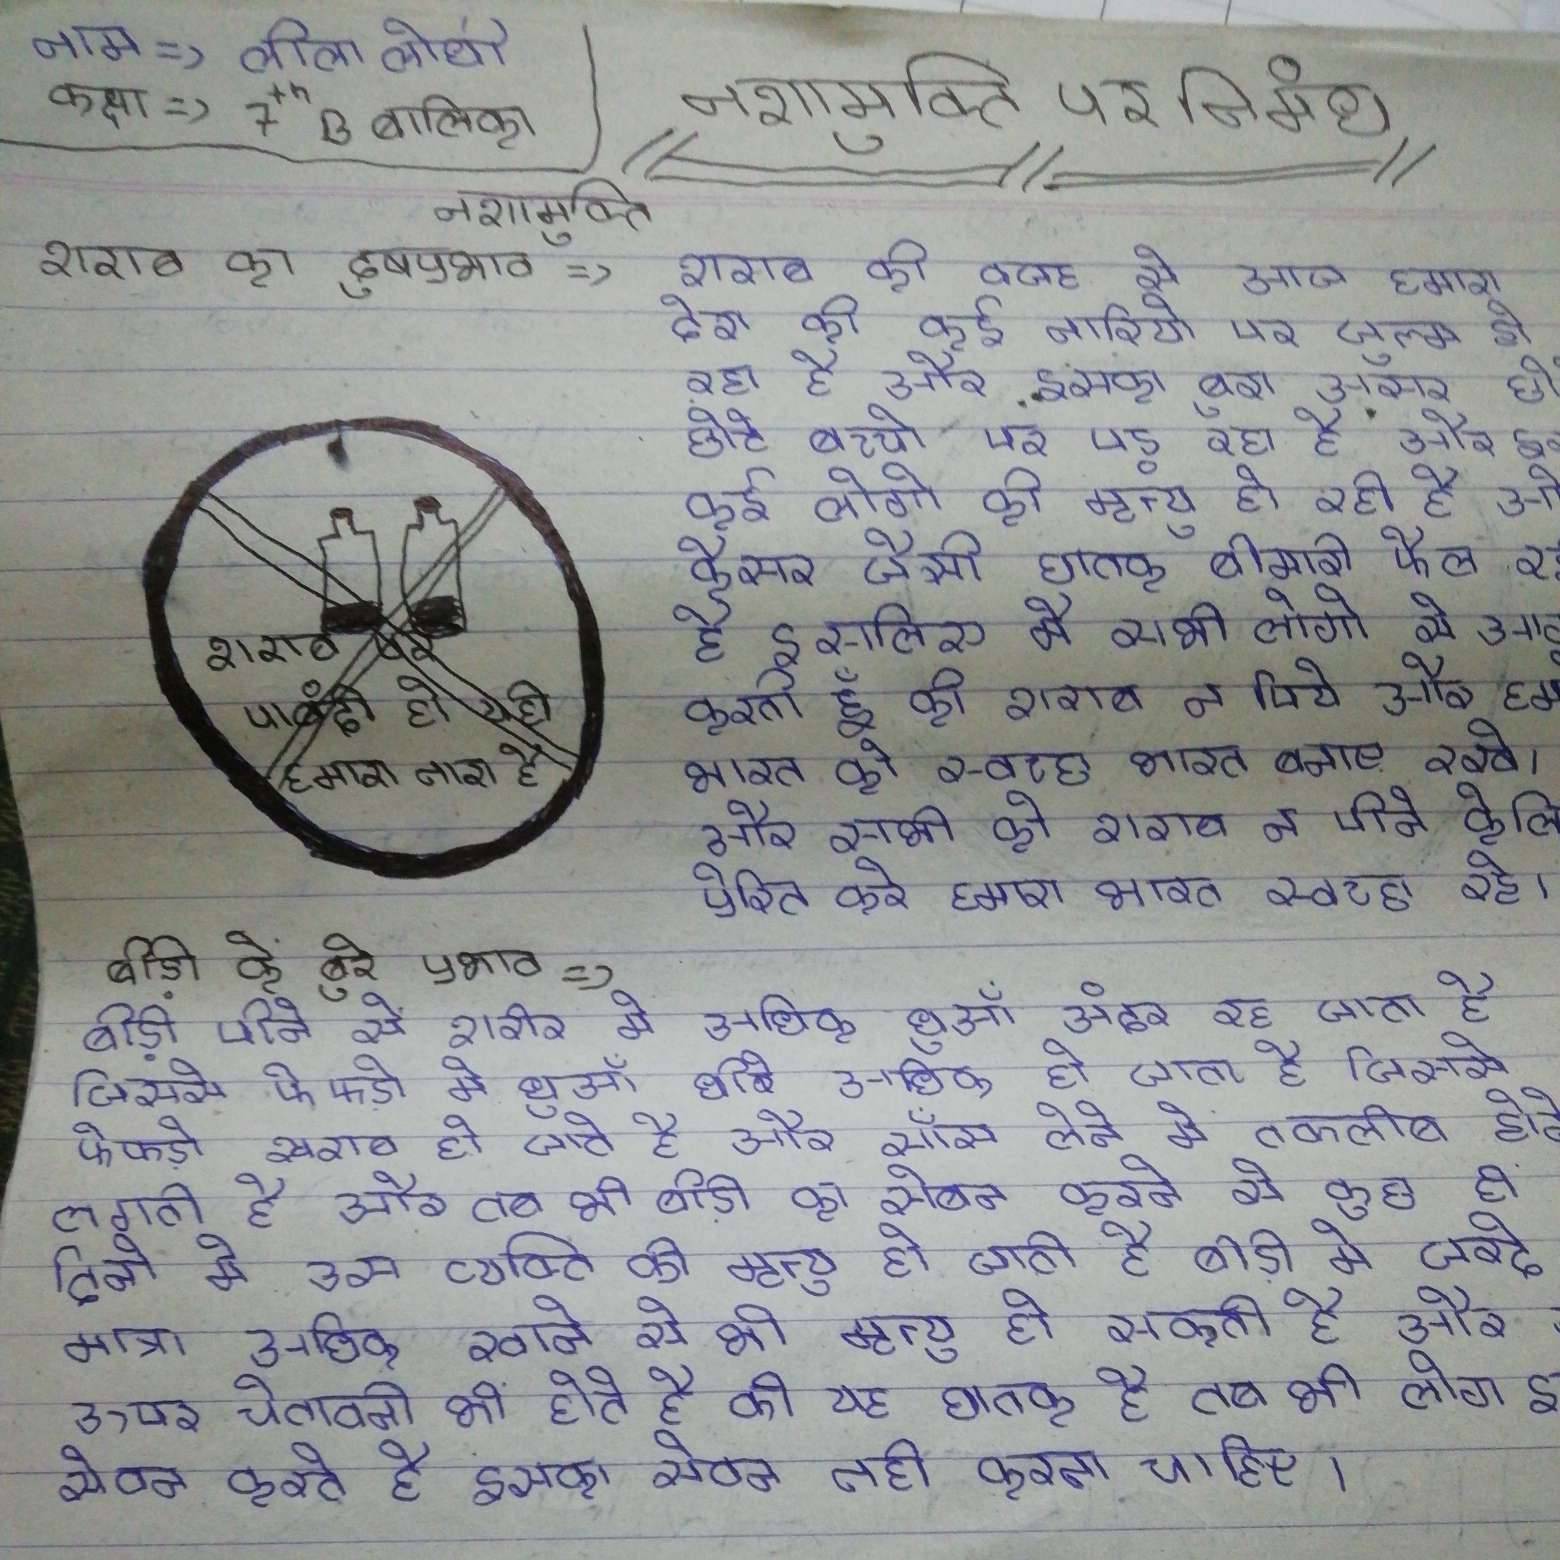 नाम => लीला लोधी
कक्षा => 7th B बालिका
नशामुक्ति पर निमंध
नशामुक्ति
शराब का दुषप्रभाव =>
शराब की वजह से आज हमारा
देश की कई नारियो पर जुल्म हो
रहा है और इसका बुरा असर
छोटे बच्चो पर पड़ रहा है और
कई लोगो की मृत्यु हो रही है
कैसर जैसी घातक बीमारी फैल
है इसलिए मै सभी लोगो से
करती हूँ की शराब न पिये और
भारत को स्वच्छ भारत बनाए रखे।
और सभी को शराब न पीने के
प्रेरित करे हमारा भारत स्वच्छ रहे।
शराब पर
पाबंदी हो यही
हमारा नारा है
बीड़ी के बुरे प्रभाव =>
बीड़ी पीने से शरीर मे अधिक धुआँ अंदर रह जाता है
जिससे फेफड़ो मे धुआँ धीरे अधिक हो जाता है जिससे
फेफड़ो खराब हो जाते है और साँस लेने मे तकलीब होते
लगती है और तब भी बीड़ी का सेबन करने से कुछ ही
दिनो मे उस व्यक्ति की मृत्यु हो जाती है बीड़ी मे जर्दे
मात्रा अधिक खाने से भी मृत्यु हो सकती है और
ऊपर चेतावनी भी होते है की यह घातक है तब भी लोग
सेवन करते है इसका सेवन नही करना चाहिए।